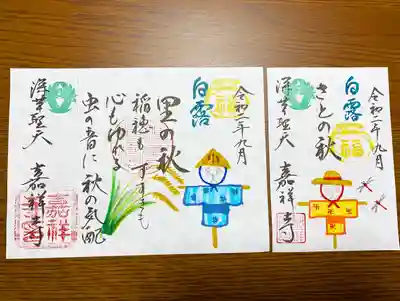 令和二年九月
白露
里の秋
稲穂も すすきも
心もゆれる
虫の音に 秋の気配
深草聖天 嘉祥寺
嘉祥寺
令和二年九月
白露
福
さとの秋
深草聖天 嘉祥寺